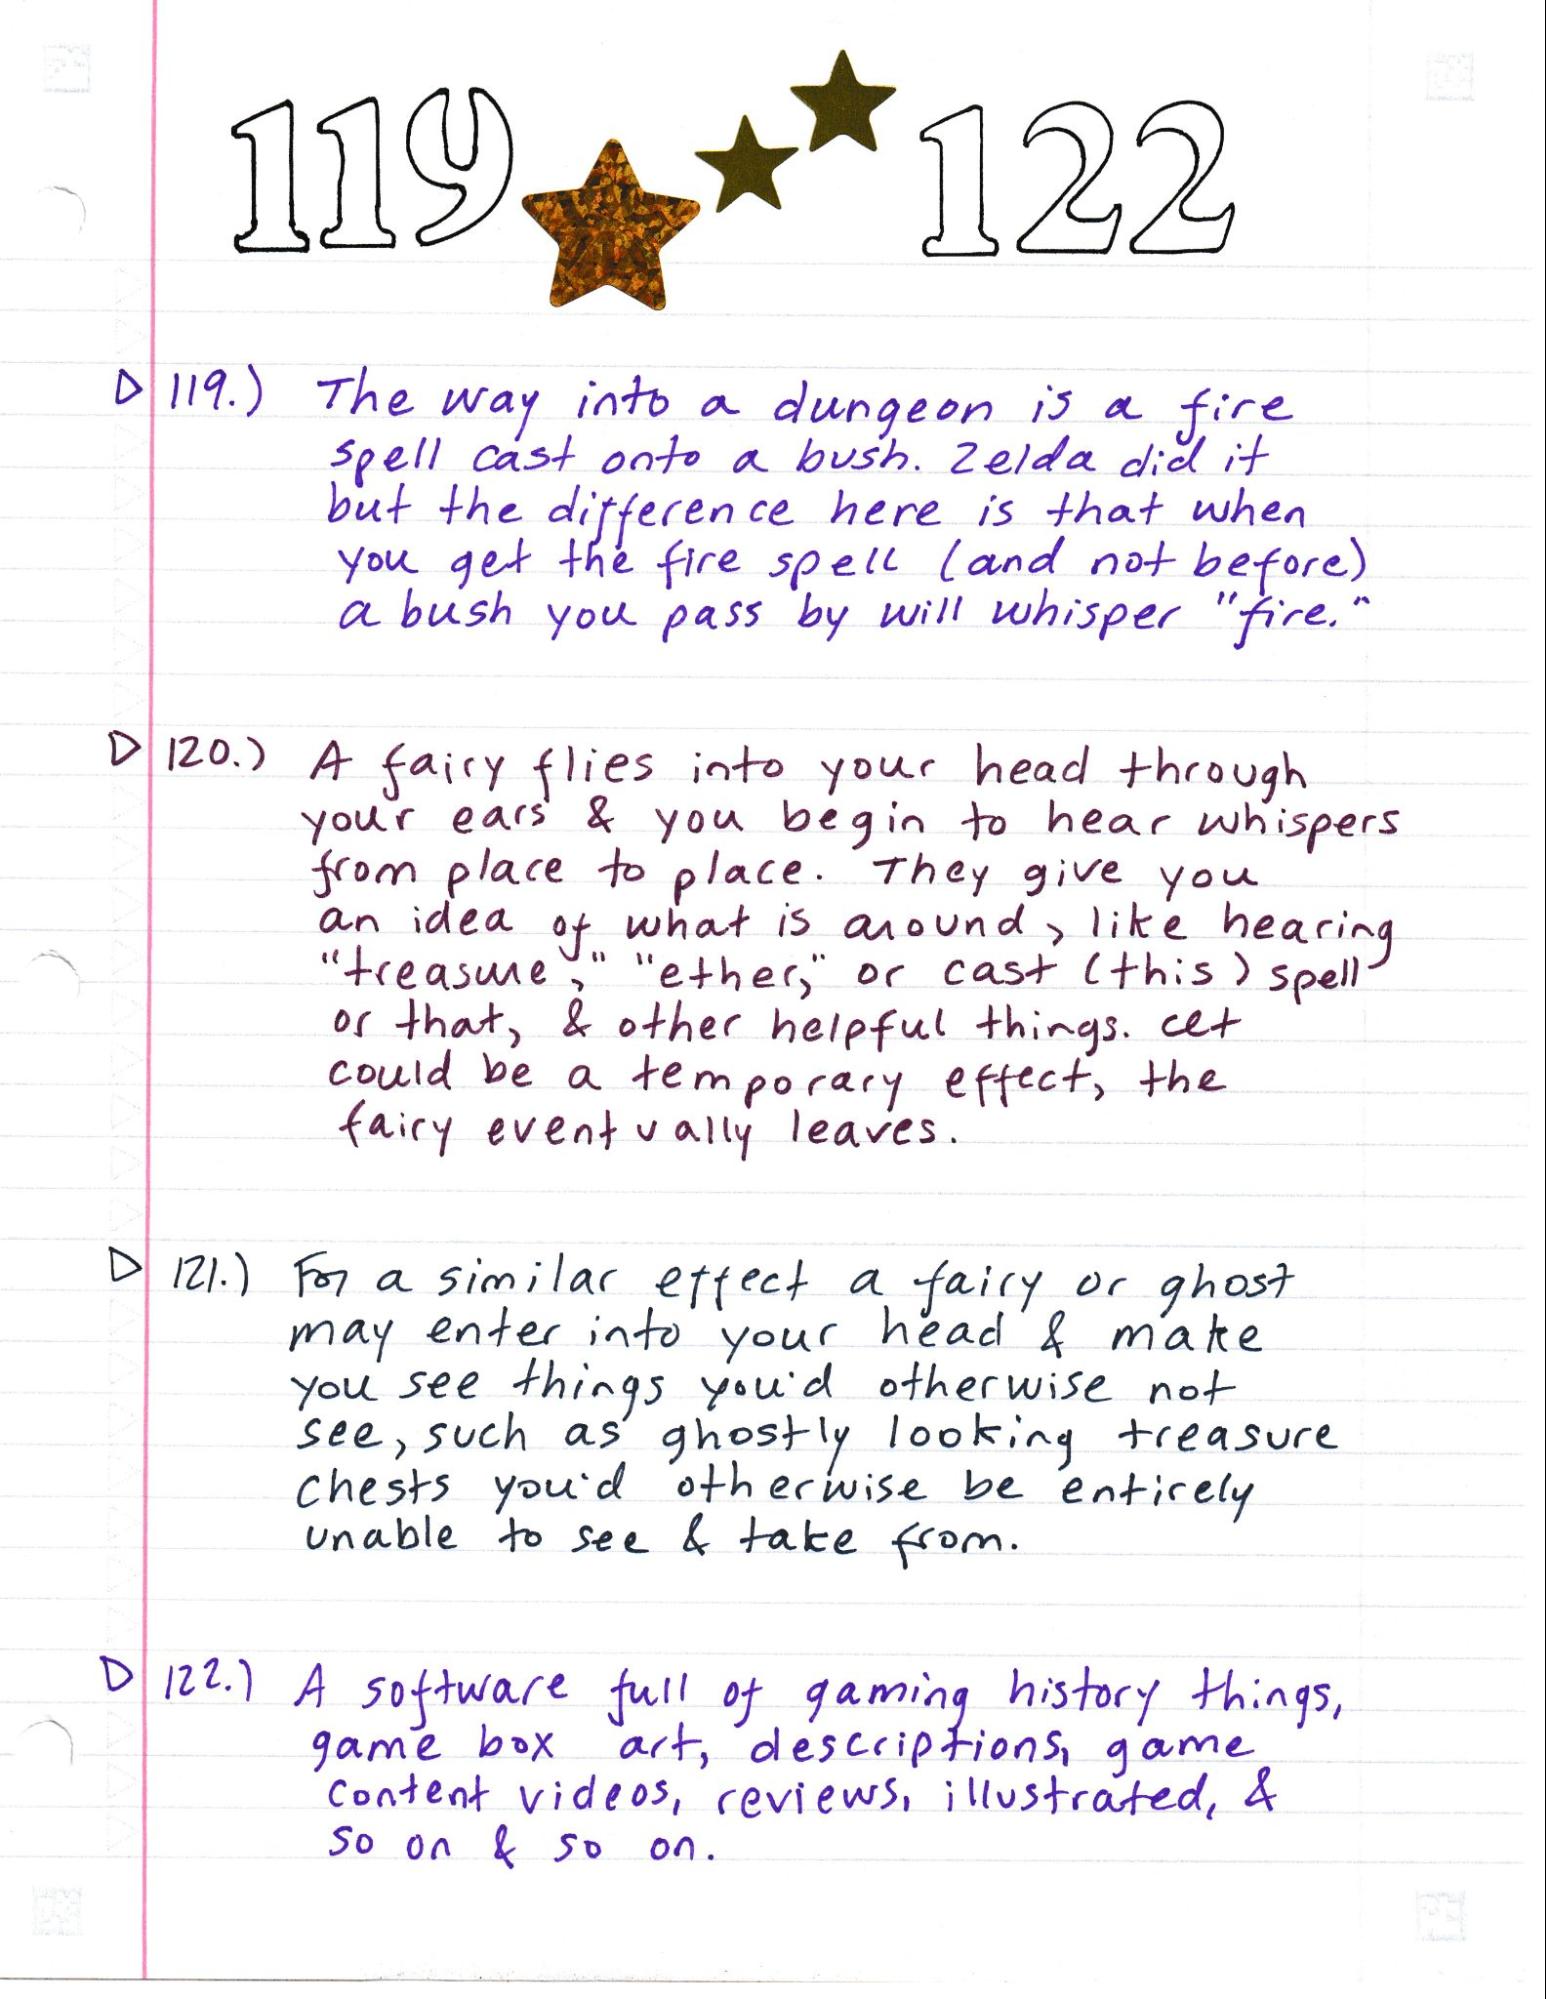 119 122
119.) The way into a dungeon is a fire
spell cast onto a bush. Zelda did it
but the difference here is that when
you get the fire spell (and not before)
a bush you pass by will whisper "fire."
120.) A fairy flies into your head through
your ears & you begin to hear whispers
from place to place. They give you
an idea of what is around, like hearing
"treasure," "ether," or cast (this) spell
or that, & other helpful things. It
could be a temporary effect, the
fairy eventually leaves.
121.) For a similar effect a fairy or ghost
may enter into your head & make
you see things you'd otherwise not
see, such as ghostly looking treasure
chests you'd otherwise be entirely
unable to see & take from.
122.) A software full of gaming history things,
game box art, descriptions, game
content videos, reviews, illustrated, &
so on & so on.